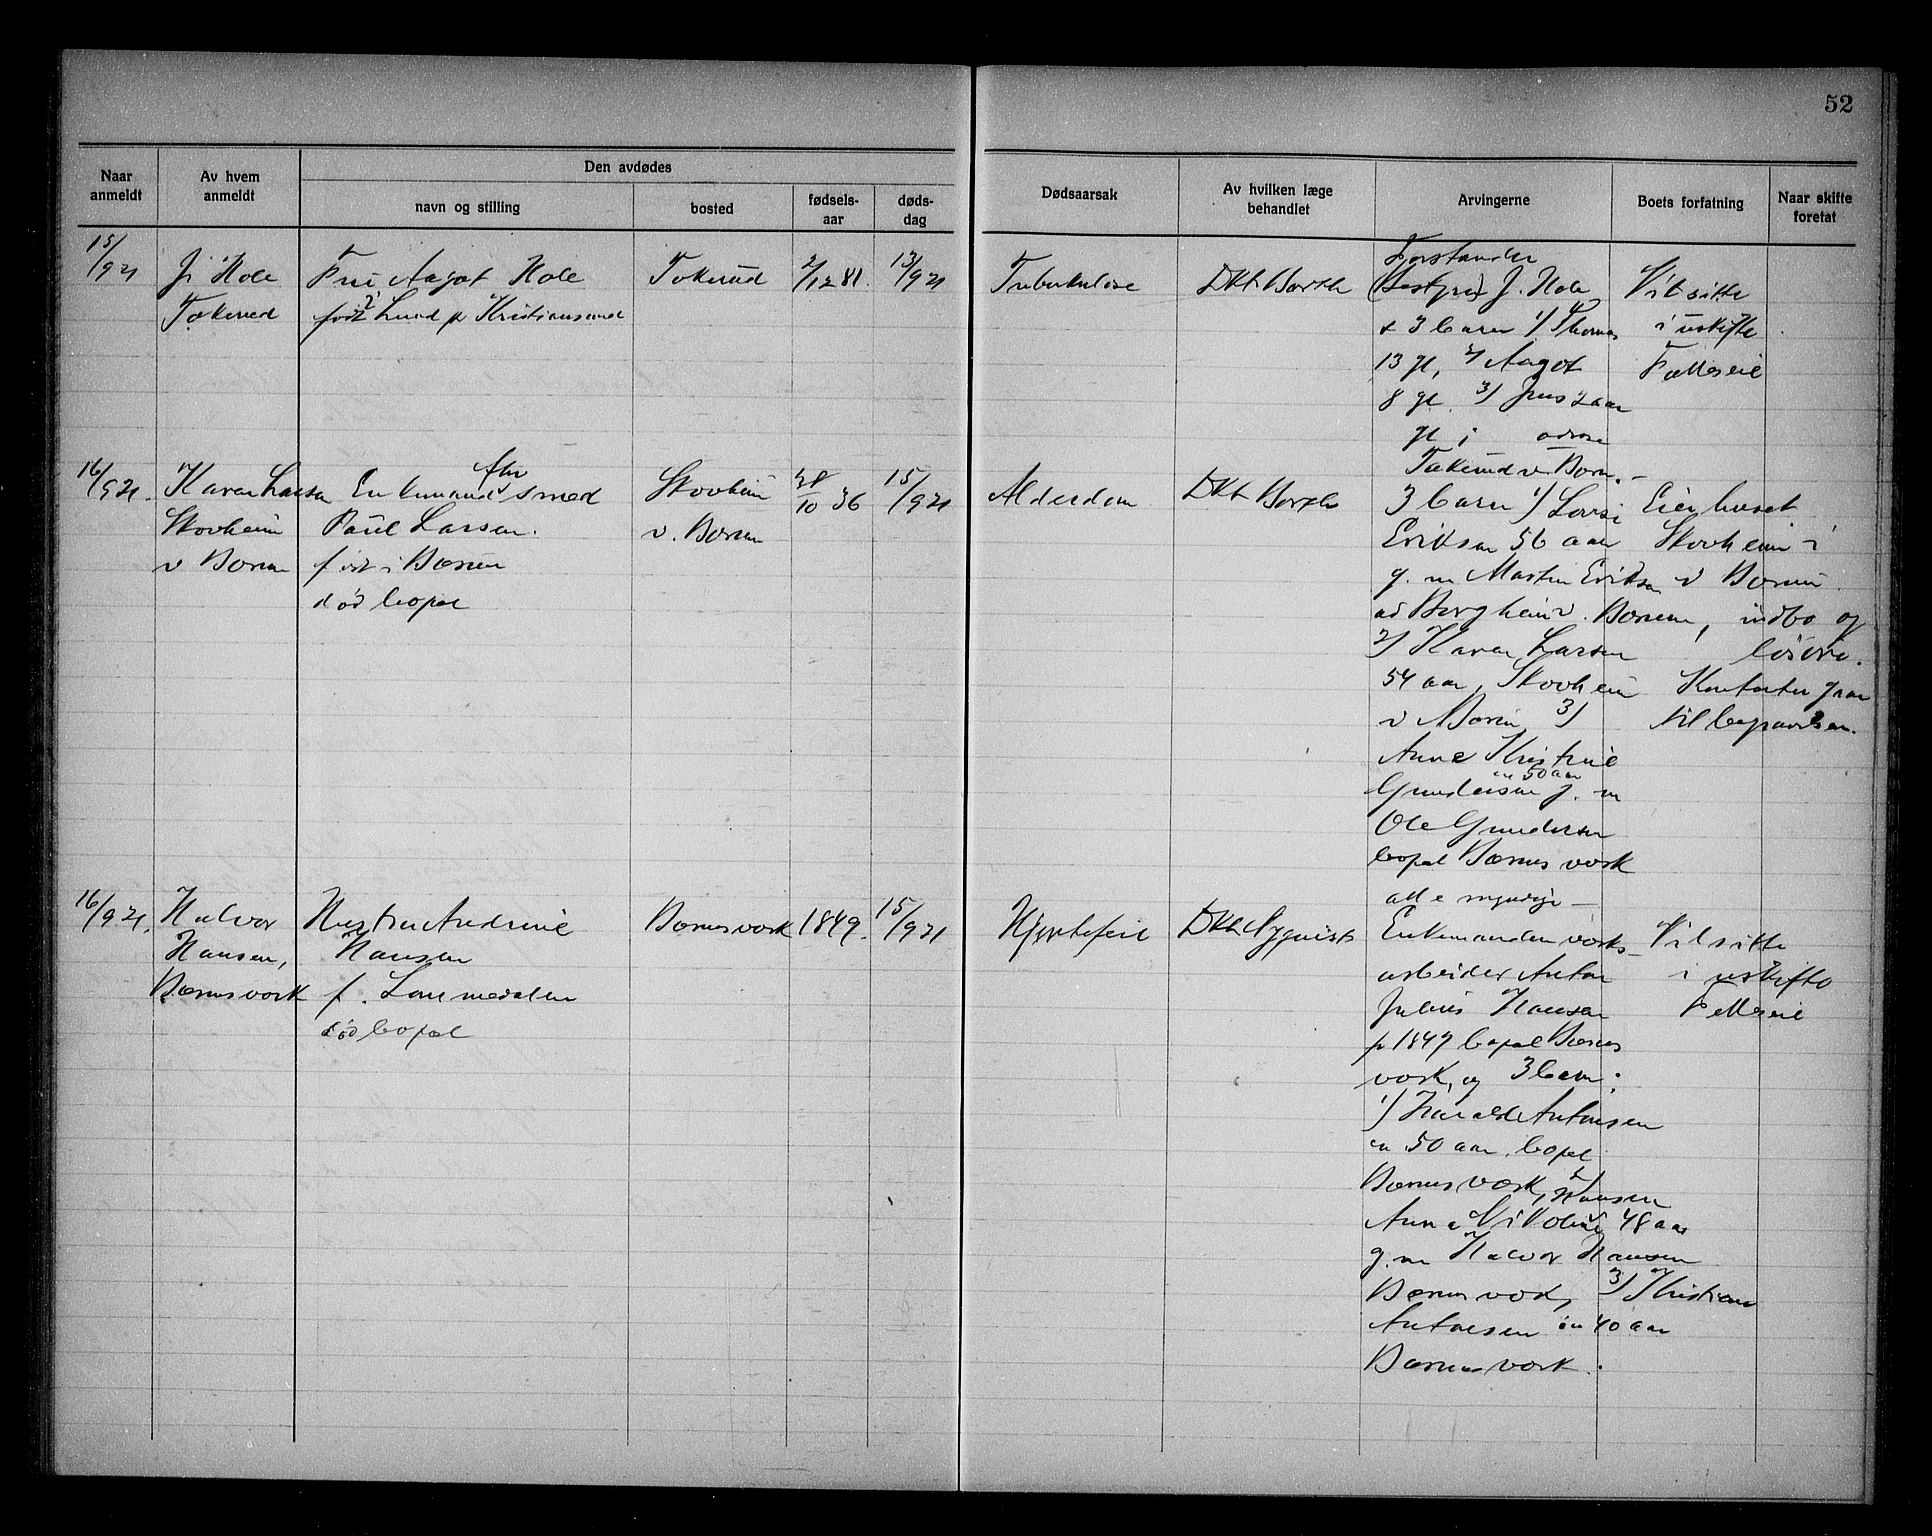 52
Naar anmeldt
Av hvem anmeldt
Den avdødes
navn og stilling
bosted
fødsels-aar
døds-dag
Dødsaarsak
Av hvilken læge behandlet
Arvingerne
Boets forfatning
Naar skifte foretat
15/9 21
J. Hole
Tokerud
Fru Aagot Hole
født Lund p Kristiansand
Tokerud
2/12 81.
13/9 21
Tuberkulose
Dkt. Barth
Forstander
(Bestyrer) J. Hole
& 3 barn 1/ Thomas
13 gl, 2/ Aagot
8 gl. 3/ Jens 2 aar
gl
Tokerud v Bærum.
Vil sitte
i uskifte
Fælleseie
16/9 21.
Karen Larsen
Skovheim
v Bærum
Enkemand fhv smed
Paul Larsen.
født i Bærum
død bopæl
Skovheim
v. Bærum
28/10 36
15/9 21
Alderdom
Dkt Barth
3 barn 1/ Lovise
Eriksen 56 aar
g. m Martin Eriksen
ad Bergheim v. Bærum,
2) Karen Larsen
54 aar, Skovheim
v Bærum 3)
Anne Kristine
Gundersen g. m
50 aar
Ole Gundersen
bopæl Bærums værk
alle myndige –
Eier huset
Skovheim i
v Bærum
indbo og
løsøre.
Kontanter gaar
til begravelsen.
16/9 21.
Halvor
Hansen,
Bærums værk
Hustru Andrine
Hansen
f. Lommedalen
død bopæl
Bærums værk
1849.
15/9 21
Hjertefeil
Dkt. Nyquist
Enkemanden værks-
arbeider Anton
Julius Hansen
f 1847 bopæl Bærums
værk, og 3 barn:
1/ Harald Antonsen
ca 50 aar, bopæl
Bærums værk, 2/ Hansen
Anna Nikoline 48 aar
g. m Halvor Hansen
Bærums værk, 3/ Kristian
Antonsen ca 40 aar
Bærums værk.
Vil sitte
i uskifte
Felleseie